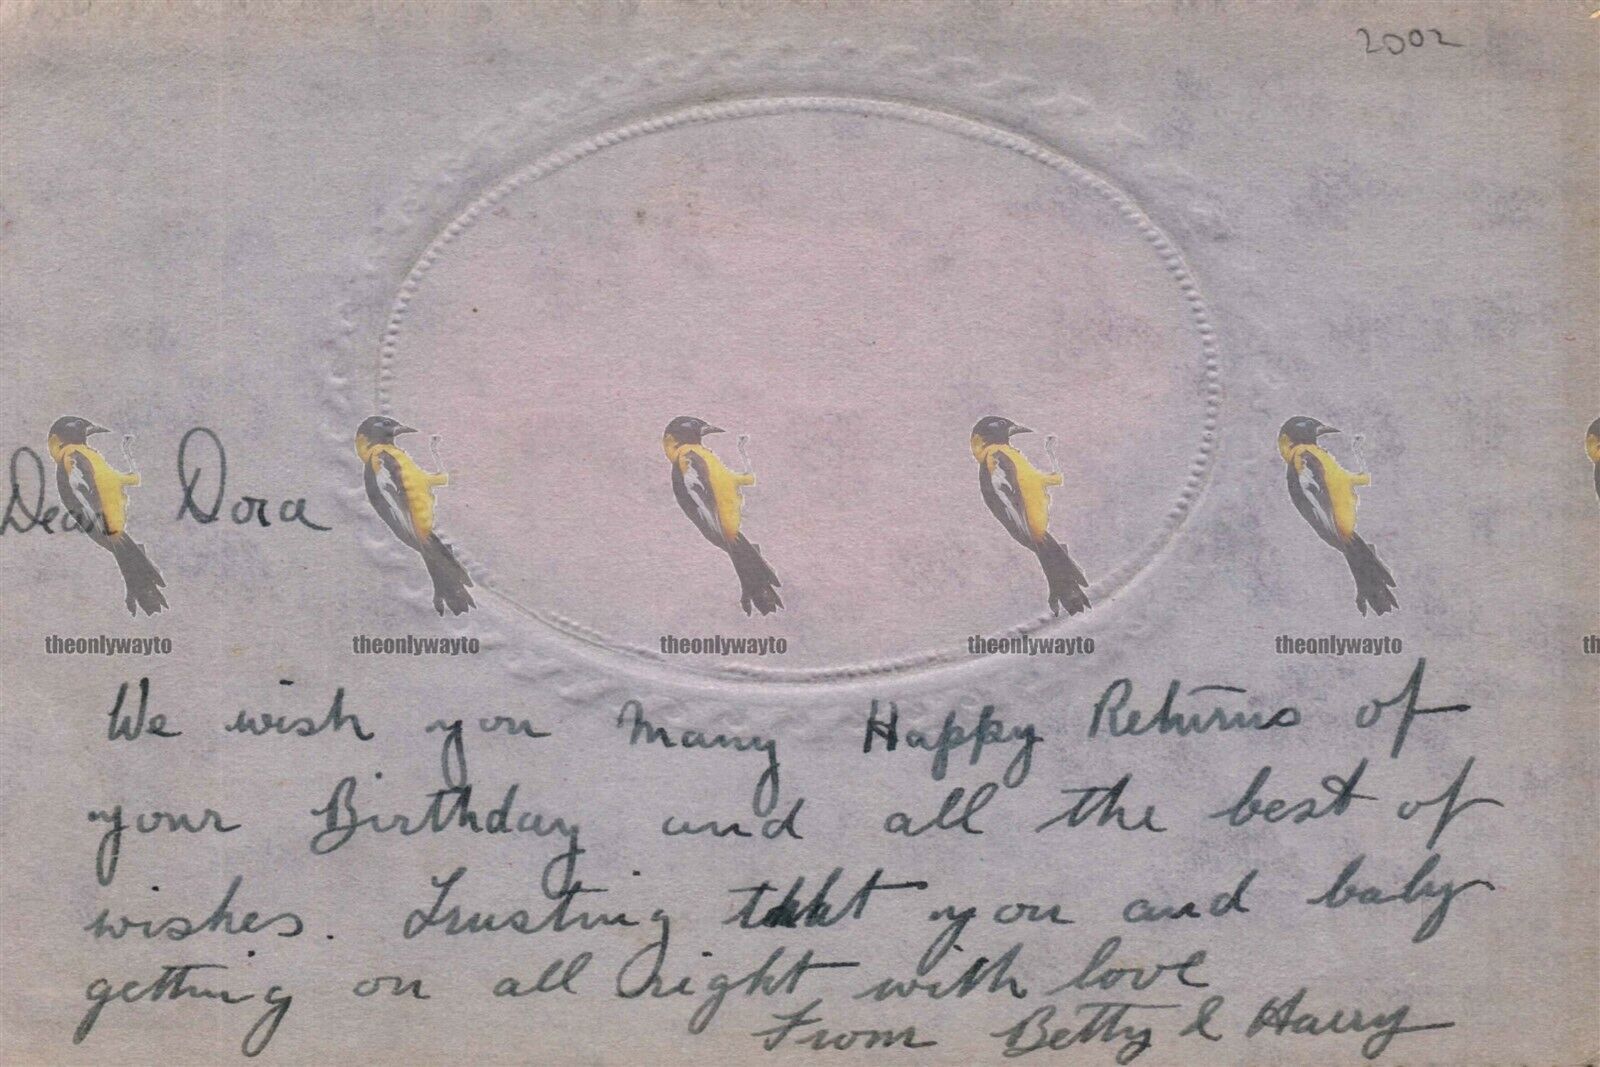 2002
Dear Dora
theonlywayto theonlywayto theonlywayto theonlywayto theonlywayto th
We wish you Many Happy Returns of
your Birthday and all the best of
wishes. Trusting that you and baby
getting on all right with love
From Betty & Harry